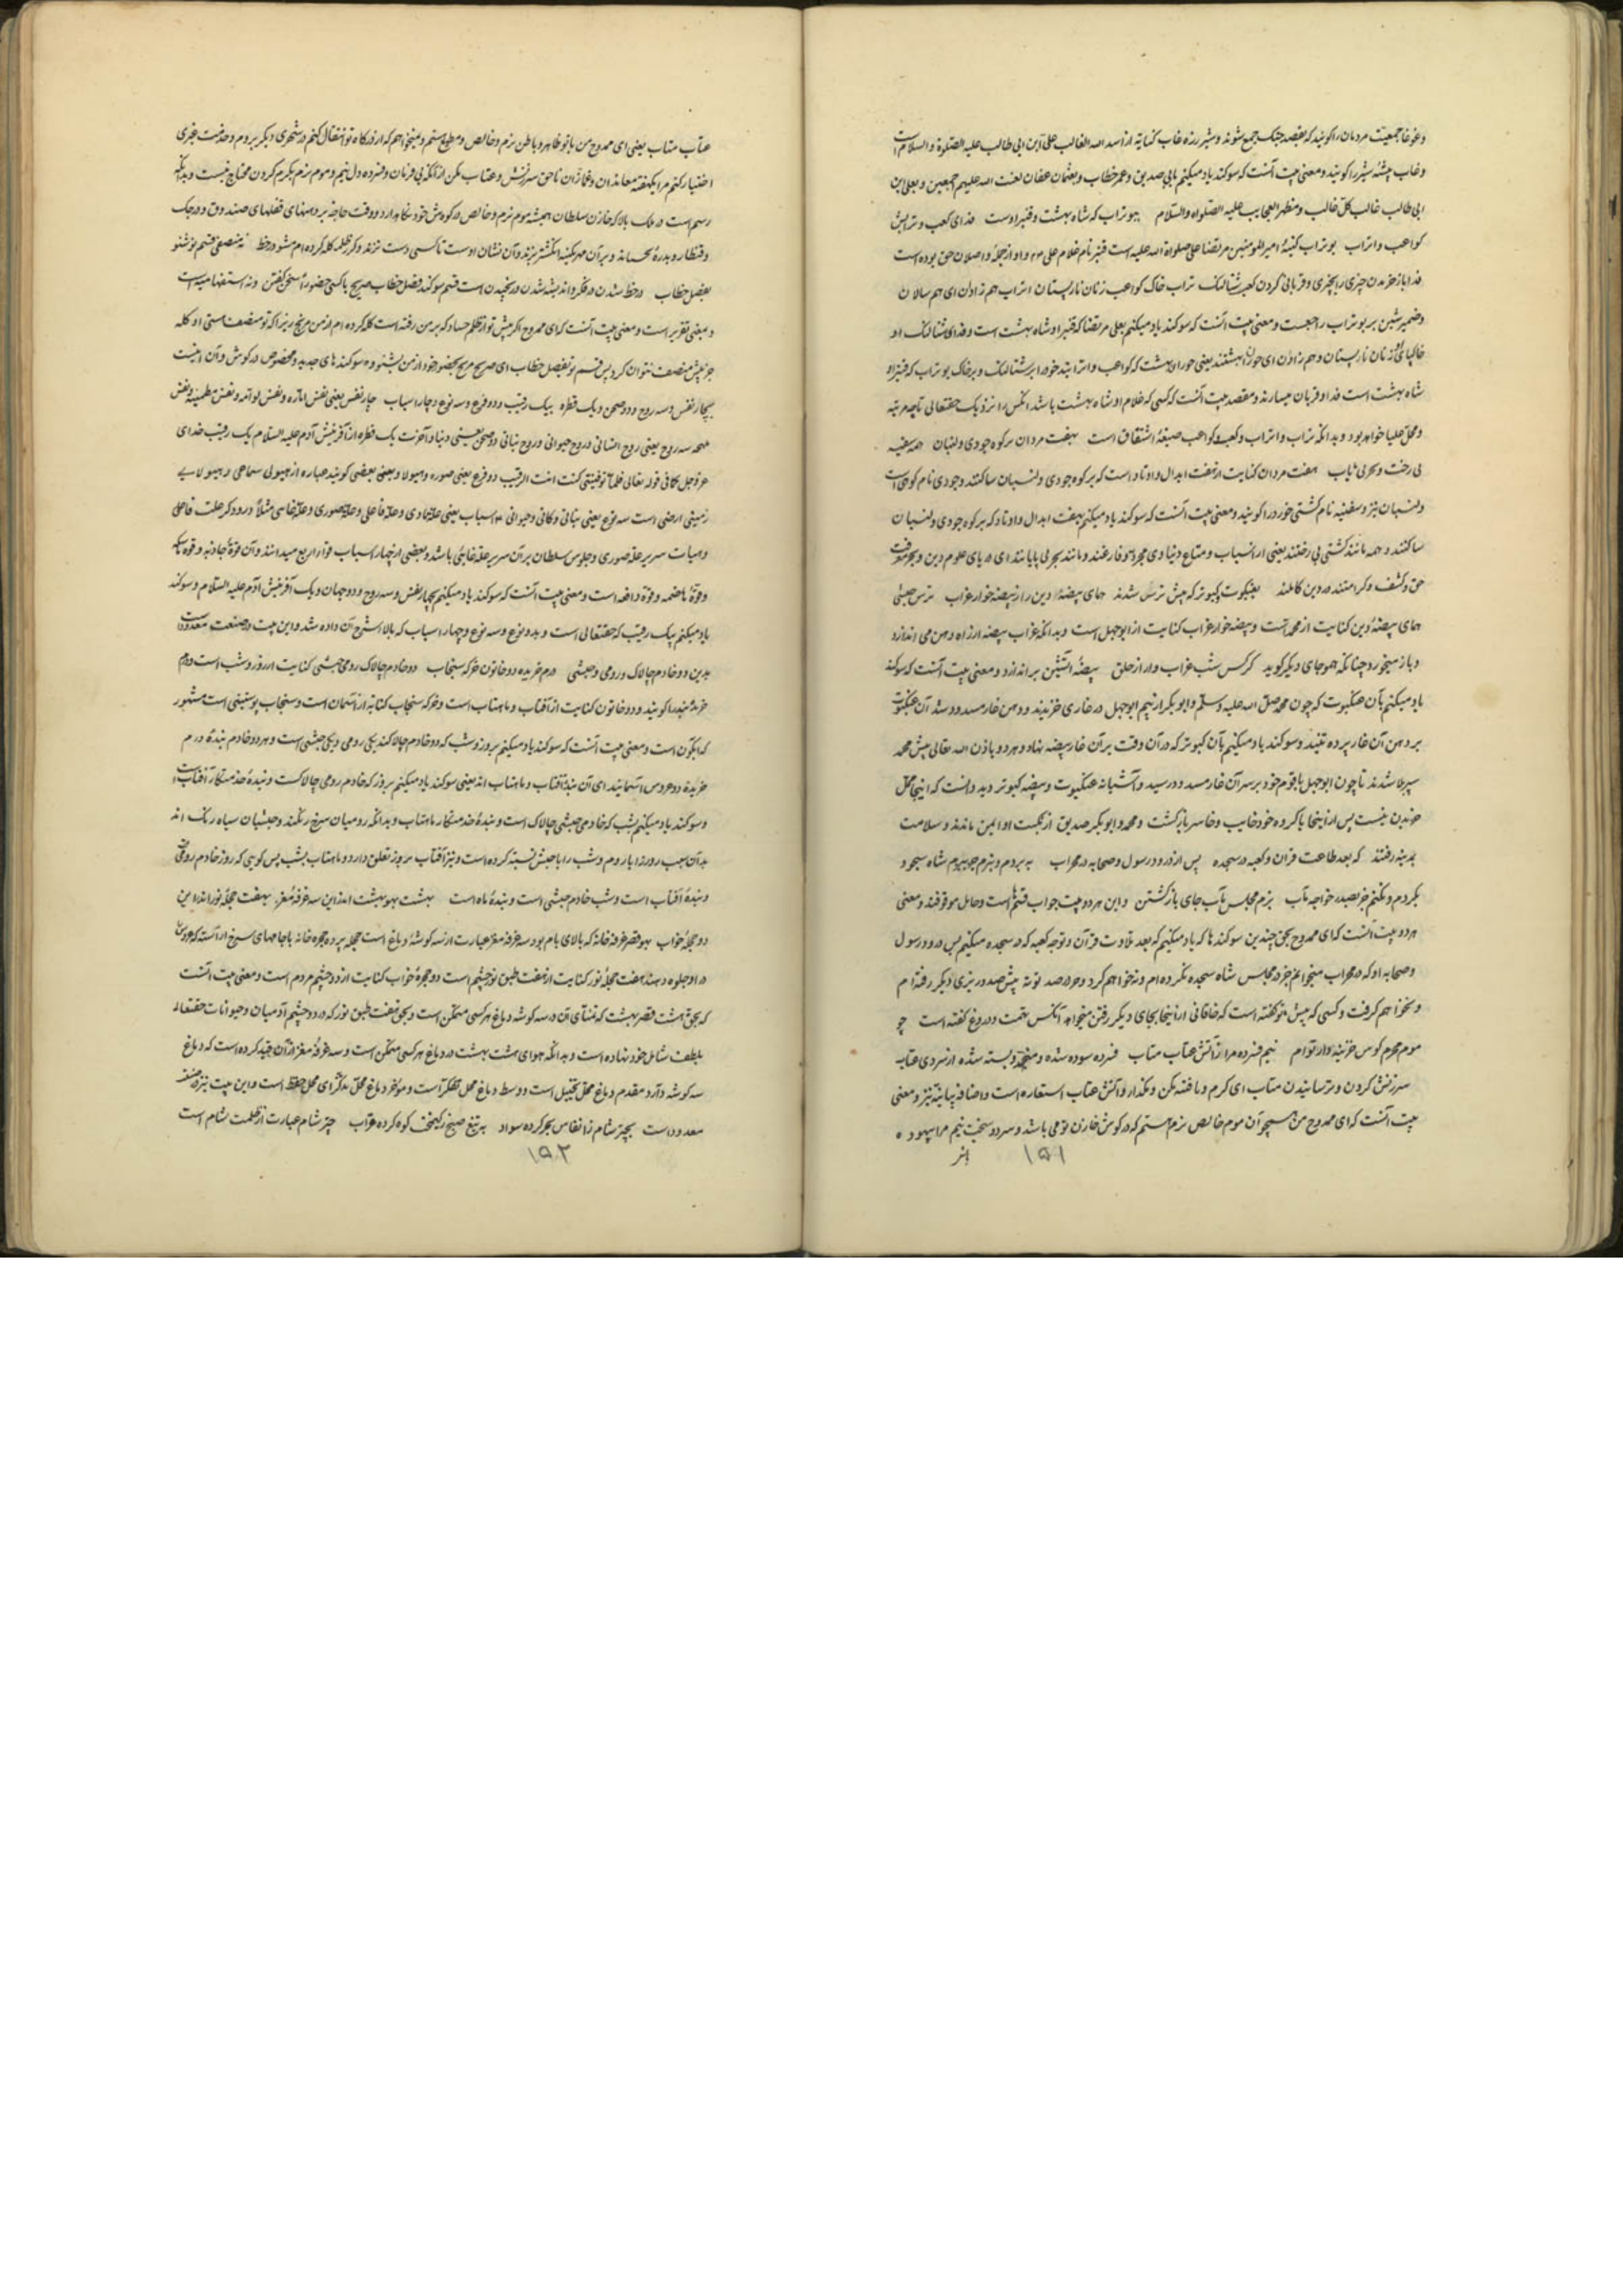 وغوغا جمعیت مردمان را گویند که بقصد جنگ جمع شوند و شیر رزه غاب کنایة از اسد الله الغالب علی ابن ابی طالب علیه الصلوة والسلام است
وغاب بیشه شیر را گویند و معنی بیت آنست که سوگند یاد میکنم بابی صدیق و عمر خطاب و بعثمان عفان لعنت الله علیهم اجمعین و بعلی ابن
ابی طالب غالب کل غالب و مظهر العجایب علیه الصلواه والسلام ببوتراب که شاه بهشت و قنبر اوست فدای کعب و ترابش
کواعب و اتراب بوتراب کنیهٔ امیر المومنین مرتضا علی صلواة الله علیه است قنبر نام غلام علی و او از جملهٔ واصلان حق بوده است
فدا باز خریدن چیزی را بچیزی و قربانی کردن کعب شتالنک تراب خاک کواعب زنان نار پستان اتراب هم زادان ای هم سالان
وضمیر شین بر بوتراب راجعست و معنی بیت آنست که سوگند یاد میکنم بعلی مرتضا که قنبر او شاه بهشت است و فدای شتالنک او
خاکپای او زنان نار پستان و هم زادان ای حوران بهشتند یعنی حوران بهشت که کواعب و اترابند خود را بر شتالنک و بر خاک بوتراب که قنبر او
شاه بهشت است فدا و قربان میسازند و مقصد بیت آنست که کسی که غلام او شاه بهشت باشد آنکس را نزدیک حقتعالی تا چه مرتبه
ومحل علیا خواهد بود و بدانکه تراب و اتراب و کعب و کواعب صیغهٔ اشتقاق است بهفت مردان بر کوه جودی و لبنان همه سفینه
بی رخت و بحر بی پایاب هفت مردان کنایت از هفت ابدال و اوتاد است که بر کوه جودی و لبنان ساکنند و جودی نام کوهی است
ولبنان نیز و سفینه نام کشتی خورد را گویند و معنی بیت آنست که سوگند یاد میکنم بهفت ابدال و اوتاد که بر کوه جودی و لبنان
ساکنند و همه مانند کشتی بی رختند یعنی از اسباب و متاع دنیاوی مجرد و فارغند و مانند بحر بی پایانند ای دریای علوم دین و بحر معرفت
حق و کشف و کرامتند در دین کاملند بعنکبوت و کبوتر که پیش ترس شدند همای بیضهٔ دین را ز بیضه خوار غراب ترس یعنی
همای بیضهٔ دین کنایت از محمد است و بیضه خوار غراب کنایت از ابو جهل است و بدانکه غراب بیضه از راه دهن می اندازد
و باز میخورد چنانکه همو جای دیگر گوید کرکس شب غراب وار از حلق بیضهٔ آتشین بر اندازد و معنی بیت آنست که سوگند
یاد میکنم بآن عنکبوت که چون محمد صلی الله علیه و سلم و ابو بکر از بیم ابو جهل در غاری خزیدند و دهن غار مسدود شد آن عنکبوت
بر دهن آن غار پرده تنید و سوگند یاد میکنم بآن کبوتر که در آن وقت بر آن غار بیضه نهاد و هر دو باذن الله تعالی پیش محمد
سپر بلا شدند تا چون ابو جهل با قوم خود بر سر آن غار مسدود رسید و آشیانه عنکبوت و بیضهٔ کبوتر دید دانست که اینجا محل
خزیدن نیست پس از اینجا با گروه خود خایب و خاسر باز گشت و محمد و ابو بکر صدیق از نکبت او ایمن ماندند و سلامت
بمدینه رفتند که بعد طاعت قران و کعبه در سجده پس از درود رسول و صحابه در محراب به بردم و نبرم جز ببزم شاه سجود
نکردم و نکنم جز بصدر خواجه مآب بزم مجلس مآب جای بازگشتن و این هر دو بیت جواب قسمهاست و حایل موقوفند و معنی
هر دو بیت آنست که ای ممدوح بحق چندین سوگندها که یاد میکنم که بعد تلاوت قرآن و توجه کعبه که در سجده میکنم پس درود رسول
و صحابه او که در محراب میخوانم جز در مجلس شاه سجده نکرده ام و نخواهم کرد و جز در صد تو نه پیش صدور بزی دیگر رفته ام
و نخواهم گرفت و کسی که پیش تو گفته است که خاقانی از اینجا بجای دیگر رفتن میخواهد آنکس تهمت و دروغ گفته است چو
موم محرم گوش خزینه دار تو ام نیم فسرده مرا ز آتش عتاب متاب فسرده سوده شده و منجمد و بسته شده از سردی عتاب
سرزنش کردن و ترسانیدن متاب ای گرم و تافته مکن و مگدار و آتش عتاب استعاره است و اضافه بیانیه نیز و معنی
بیت آنست که ای ممدوح من همچو آن موم خالص نرم هستم که در گوش خازن تو می باشد و سرد و سخت نیم مرا بیهوده
بنر ۱۵۱
عتاب متاب یعنی ای ممدوح من با تو ظاهر و باطن نرم و خالص و مطیع هستم و نمیخواهم که از درگاه تو انتقال کنم در شهری دیگر بروم و خدمت غیری
اختیار کنم مرا بگفته معاندان و غمازان ناحق سرزنش و عتاب مکن از آنکه بی فرمان و فسرده دل نیم و موم نرم بگرم کردن محتاج نیست و بدانکه
رسم است در ملک بالا که خازن سلطان همیشه موم نرم و خالص در گوش خود نگاه دارد و وقت حاجة بر دهنهای قفلهای صندوق و درجک
و قنطار و بدره بچسپاند و بر آن مهر نگینه انگشتر بزند و آن نشان اوست تا کسی دست نزند و گر ز ظلمه گله کرده ام مشو در خط نه منصفی قسم نو شنو
بفصل خطاب در خط شدن در فکر و اندیشه شدن و رنجیدن است قسم سوگند فصل خطاب صریح با کسی حضوراً سخن گفتن و نه استفهامیه است
و بمعنی تقریر است و معنی بیت آنست که ای ممدوح اگر پیش تو از ظلم حساد که بر من رفته است گله کرده ام از من مرنج زیرا که تو منصف هستی و گله
جز پیش منصف نتوان کرد پس قسم نو بفصل خطاب ای صریح صریح بحضور خود از من بشنو و سوگندهای جدید و مخصوص در گوش و آن اینست
بچار نفس و سه روح و دو صحن و یک فطره بیک رقیب و دو فرع و سه نوع و چار اسباب چار نفس یعنی نفس اماره و نفس لوامه و نفس مطمینه و نفس
ملهمه سه روح یعنی روح انسانی و روح حیوانی و روح نباتی دو صحن یعنی دنیا و آخرت یک فطره از آفرینش آدم علیه السلام یک رقیب خدای
عز و جل کما فی قوله تعالی فلما توفیتنی کنت انت الرقیب دو فرع یعنی صوره و هیولا و بعنی بعضی گویند عباره از هیولی سماهی و هیولایی
زمینی ارضی است سه نوع یعنی نباتی و کانی و حیوانی اسباب یعنی علة مادی و علة فاعلی و علة صوری و علة غایی مثلاً درودگر علت فاعلی
و هیات سریر علة صوری و جلوس سلطان بر آن سریر علة غایی باشد و بعضی از چهار اسباب قواء اربع میدانند و آن قوة جاذبه و قوة ماسکه
و قوة هاضمه و قوة دافعه است و معنی بیت آنست که سوگند یاد میکنم بچهار نفس و سه روح و دو جهان و یک آفرینش آدم علیه السلام و سوگند
یاد میکنم بیک رقیب که حقتعالی است و بدو نوع و سه نوع و چهار اسباب که بالا شرح آن داده شد و این بیت در صنعت معدود است
بدین دو خادم چالاک و رومی و حبشی درم خریده دو خاتون خرگه سنجاب دو خادم چالاک رومی حبشی کنایت از روز و شب است درم
خریده بنده را گویند و دو خاتون کنایت از آفتاب و ماهتاب است و خرگه سنجاب کنایة از آسمان است و سنجاب پوستینی است مشهور
که ابگون است و معنی بیت آنست که سوگند یاد میکنم بروز و شب که دو خادم چالاکند یکی رومی و یکی حبشی است و هر دو خادم بندهٔ درم
خریدهٔ دو عروس آسمانیند ای آن بنده آفتاب و ماهتاب اند یعنی سوگند یاد میکنم بروز که خادم رومی چالاکست و بندهٔ خدمتگار آفتاب است
و سوگند یاد میکنم بشب که خادمی حبشی چالاک است و بندهٔ خدمتگار ماهتاب و بدانکه رومیان سرخ رنگند و حبشیان سیاه رنگ اند
بدآن سبب روز را با روم و شب را با حبش نسبة کرده است و نیز آفتاب بروز تعلق دارد و ماهتاب بشب پس گویی که روز خادم رومی
و بندهٔ آفتاب است و شب خادم حبشی است و بندهٔ ماه است بهشت بهو بهشت اندر این سه غرفهٔ مغز بهفت حجلهٔ نور اندر این
دو حجلهٔ خواب بهو قصر غرفه خانه که بالای بام بود سه غرفهٔ مغز عبارت از سه گوشهٔ دماغ است حجله پرده حجره خانه با جامهای سرخ آراسته که عروس
در او جلوه دهند هفت حجلهٔ نور کنایت از هفت طبق نور چشم است دو حجرهٔ خواب کنایت از دو چشم مردم است و معنی بیت آنست
که بحق هشت قصر بهشت که تمنای آن در سه گوشه دماغ هر کسی متمکن است و بحق هفت طبق نور که در دو چشم آدمیان و حیوانات حقتعالی
بلطف شامل خود نهاده است و بدانکه هوای هشت بهشت در دماغ هر کسی متمکن است و سه غرفهٔ مغز از آن قید کرده است که دماغ
سه گوشه دارد مقدم دماغ محل تخییل است و وسط دماغ محل تفکر است و موخر دماغ محل تذکر ای محل حفظ است و این بیت نیز در صنعت
معدود است بچتر شام ز انفاس بحر کرده سواد به تیغ صبح ز کیمخت کوه کرده قراب چتر شام عبارت از ظلمت شام است
۱۵۲